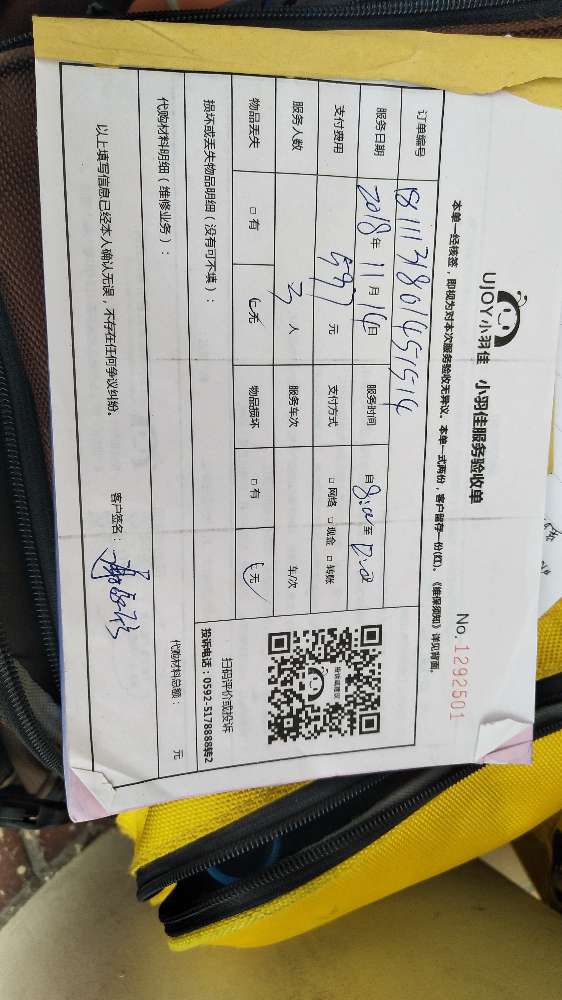 UJOY小羽佳 小羽佳服务验收单
No.1292501
本单一经核签，即视为对本次服务验收无异议。本单一式两份，客户留存一份(红)。《维保须知》详见背面。
订单编号
服务日期 2018年11月14日 服务时间 自8:00至
支付费用 597元 支付方式 □网络 □现金 □转账
服务人数 3人 服务车次 车/次
物品丢失 □有 □无 物品损坏 □有 □无
扫码评价或投诉
投诉电话：0592-5178888转2
损坏或丢失物品明细（没有可不填）：
代购材料明细（维修业务）：
代购材料总额： 元
以上填写信息已经本人确认无误，不存在任何争议纠纷。
客户签名：